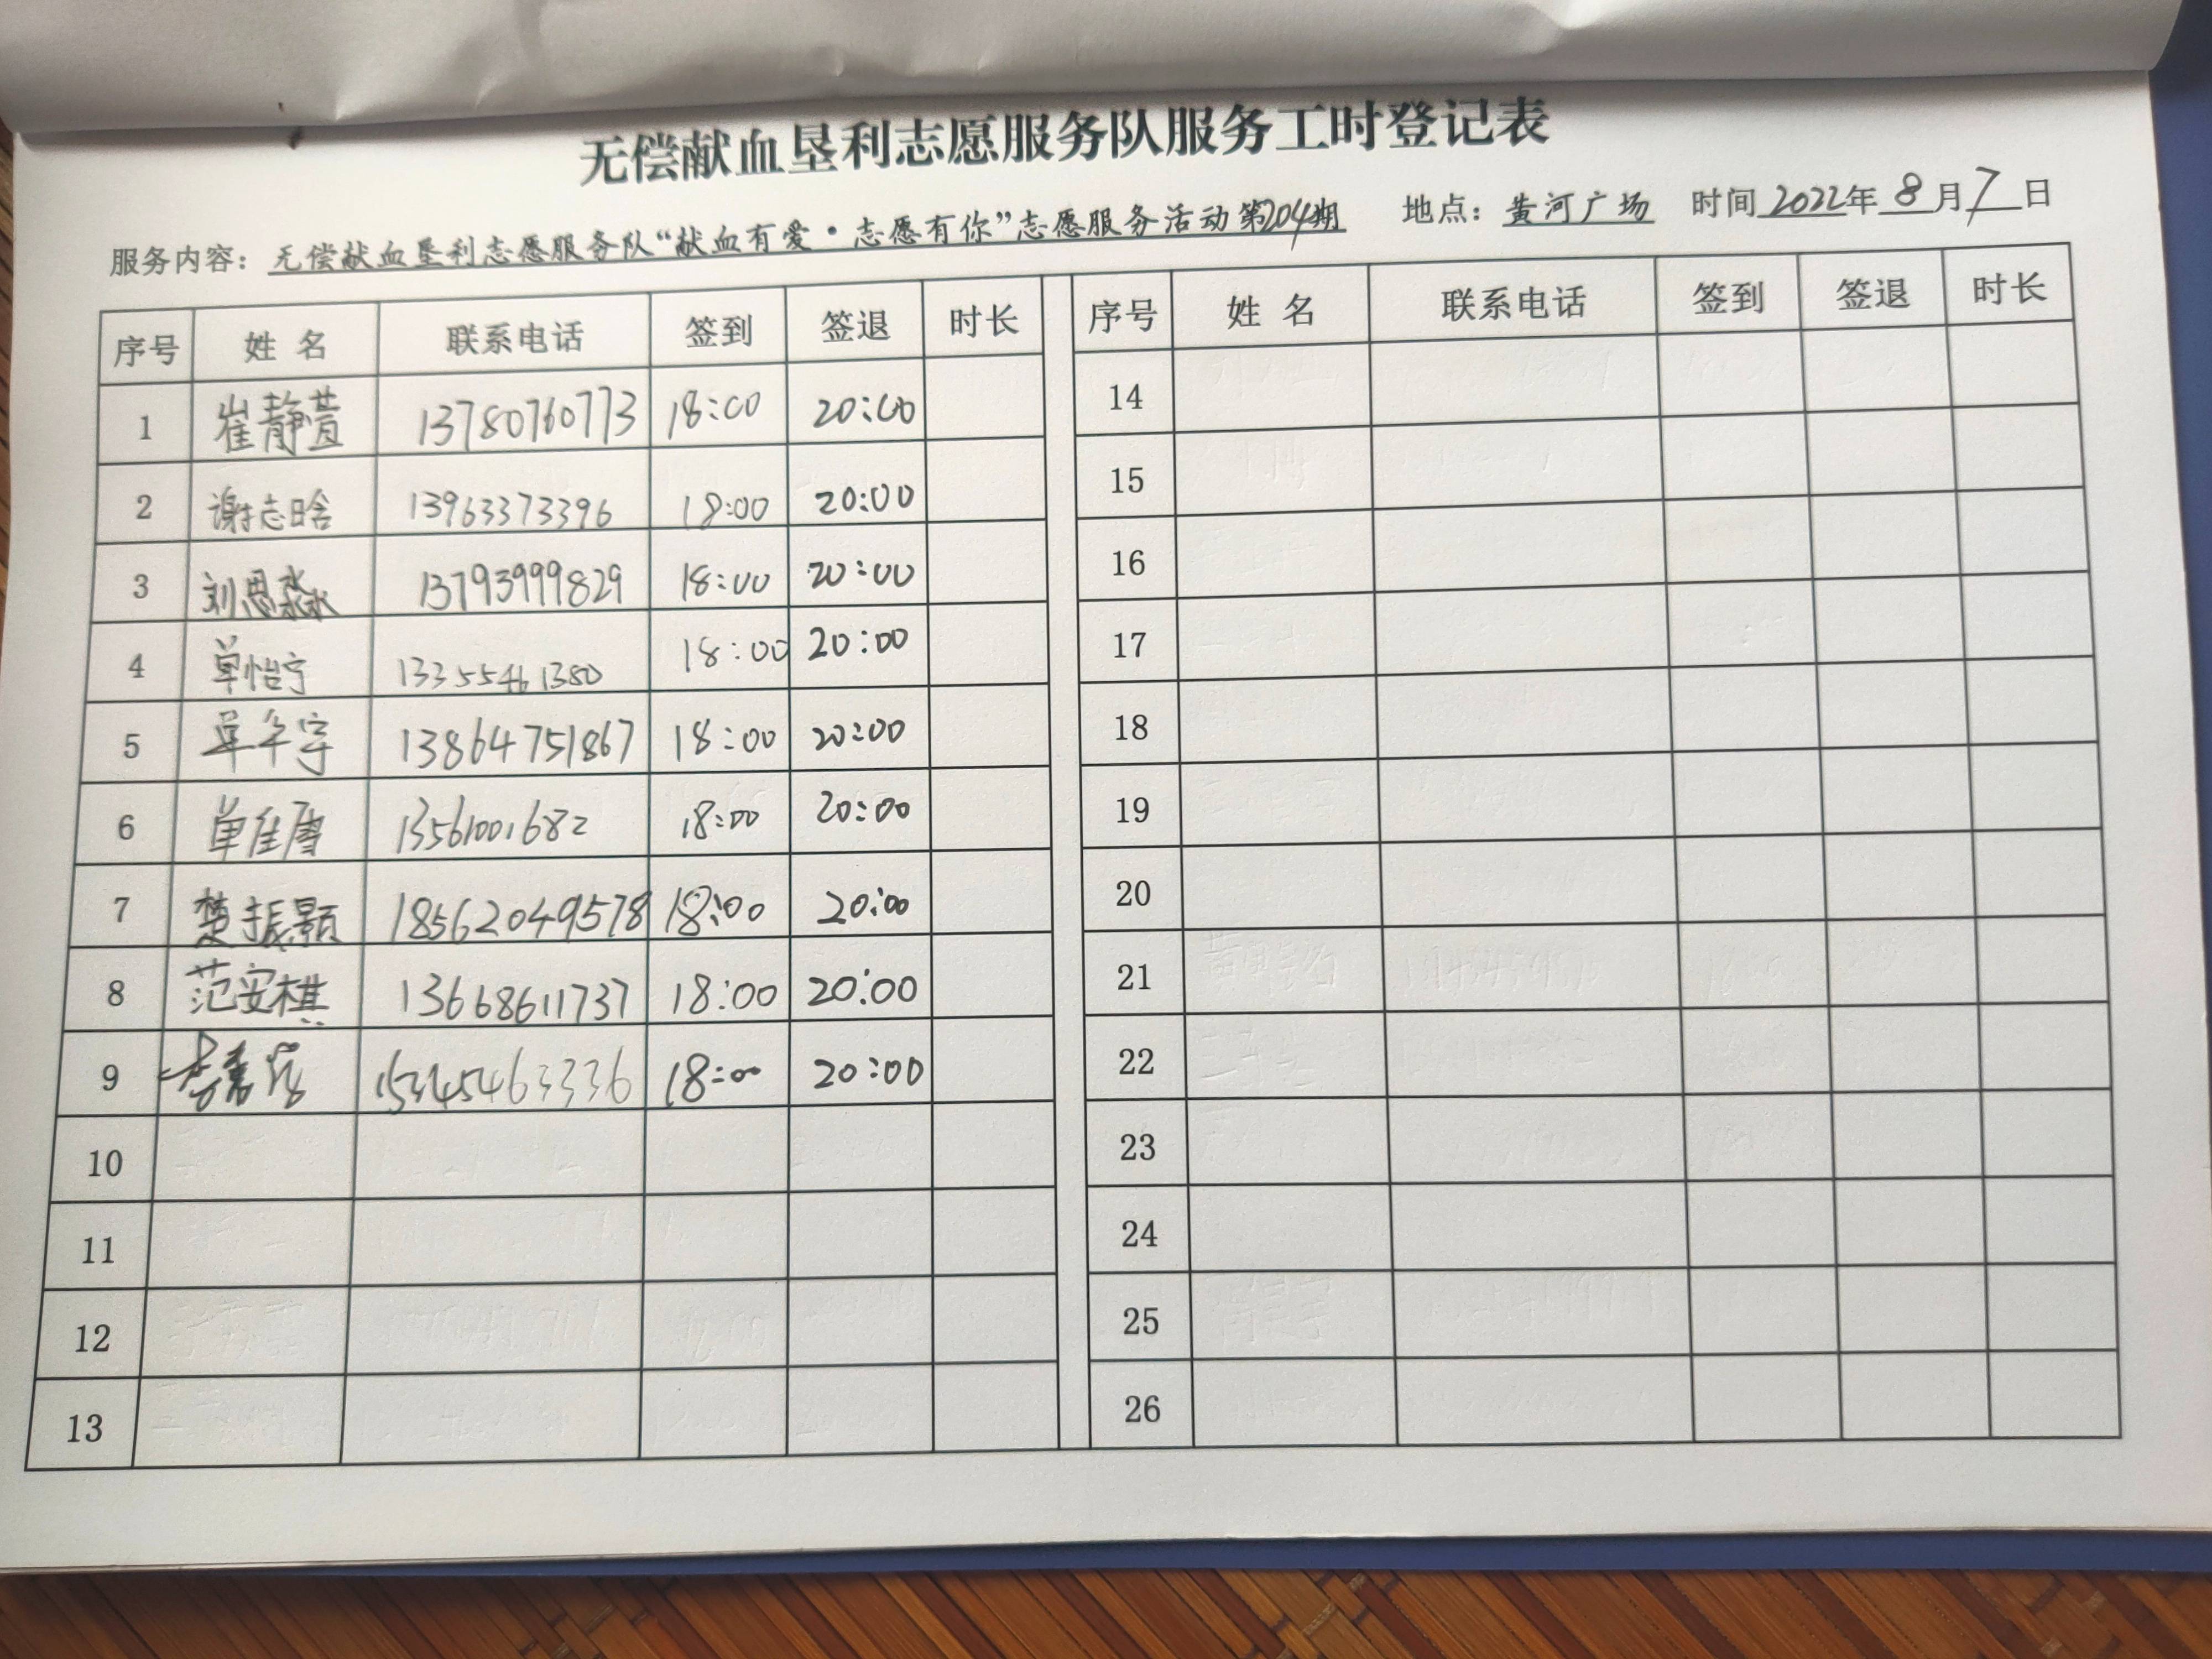 无偿献血垦利志愿服务队服务工时登记表
服务内容：无偿献血垦利志愿服务队“献血有爱·志愿有你”志愿服务活动第204期 地点：黄河广场 时间2022年8月7日
序号 姓名 联系电话 签到 签退 时长 序号 姓名 联系电话 签到 签退 时长
1 崔静萱 13780760773 18:00 20:00 14
2 谢志晗 13963373396 18:00 20:00 15
3 刘思淼 13793999829 18:00 20:00 16
4 单怡宁 13355461380 18:00 20:00 17
5 单 宇 13864751867 18:00 20:00 18
6 单 13561001682 18:00 20:00 19
7 楚振颢 18562049578 18:00 20:00 20
8 范安棋 13668611737 18:00 20:00 21
9 15345463336 18:00 20:00 22
10 23
11 24
12 25
13 26